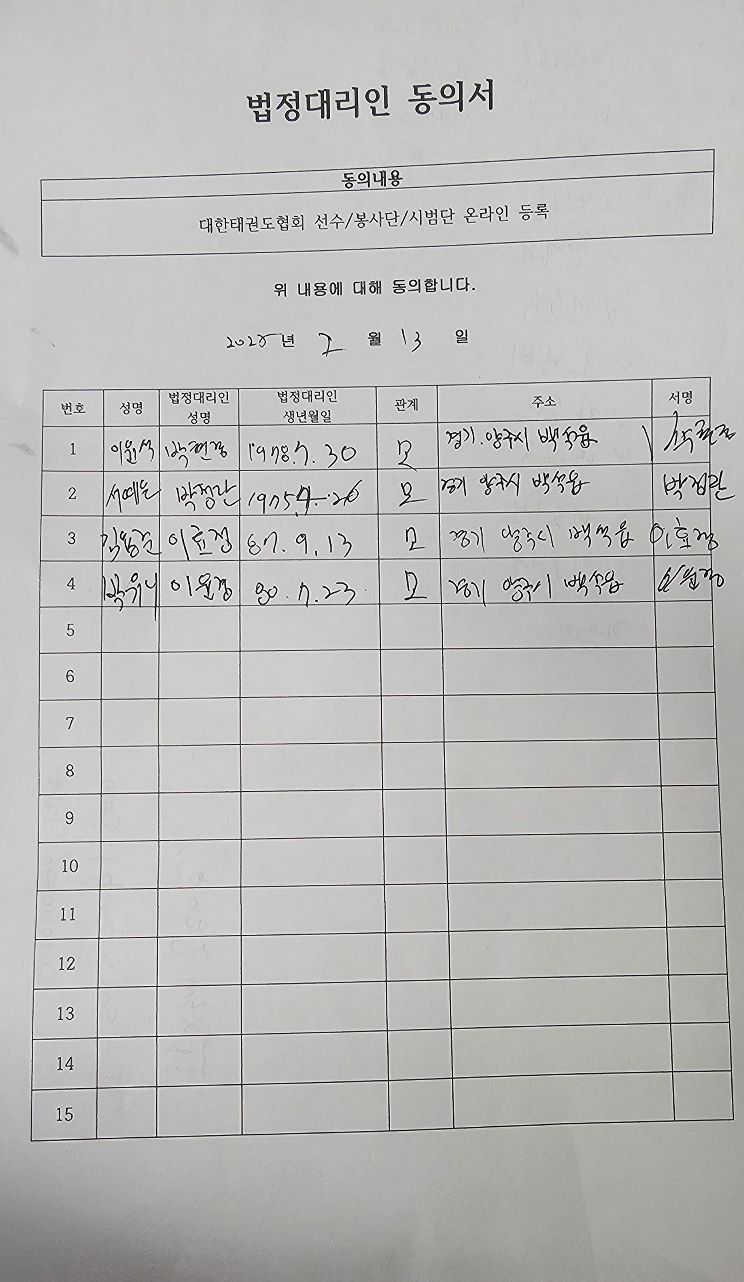 법정대리인 동의서
동의내용
대한태권도협회 선수/봉사단/시범단 온라인 등록
위 내용에 대해 동의합니다.
년 월 13 일
번호 성명 법정대리인 성명 법정대리인 생년월일 관계 주소 서명
1 이윤석 박현정 1978.7.30 모 경기.양주시 백석읍
2 서예은 박정란 모 경기 양주시 백석읍 박정란
3 이효정 87.9.13 모 경기 양주시 백석읍 이효정
4 이윤정 80.7.23 모 경기 양주시 백석읍 이윤정
5
6
7
8
9
10
11
12
13
14
15